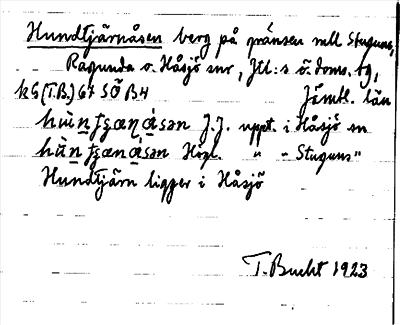 Hundtjärnåsen berg på gränsen mell Stuguns,
Ragunda o. Håsjö snr, Jtl:s ö. doms. tg,
k6 (T.B.) 67 SÖ B4 Jämtl. län
J.J. uppt. i Håsjö sn
Högl. " " Stuguns "
Hundtjärn ligger i Håsjö
T. Bucht 1923